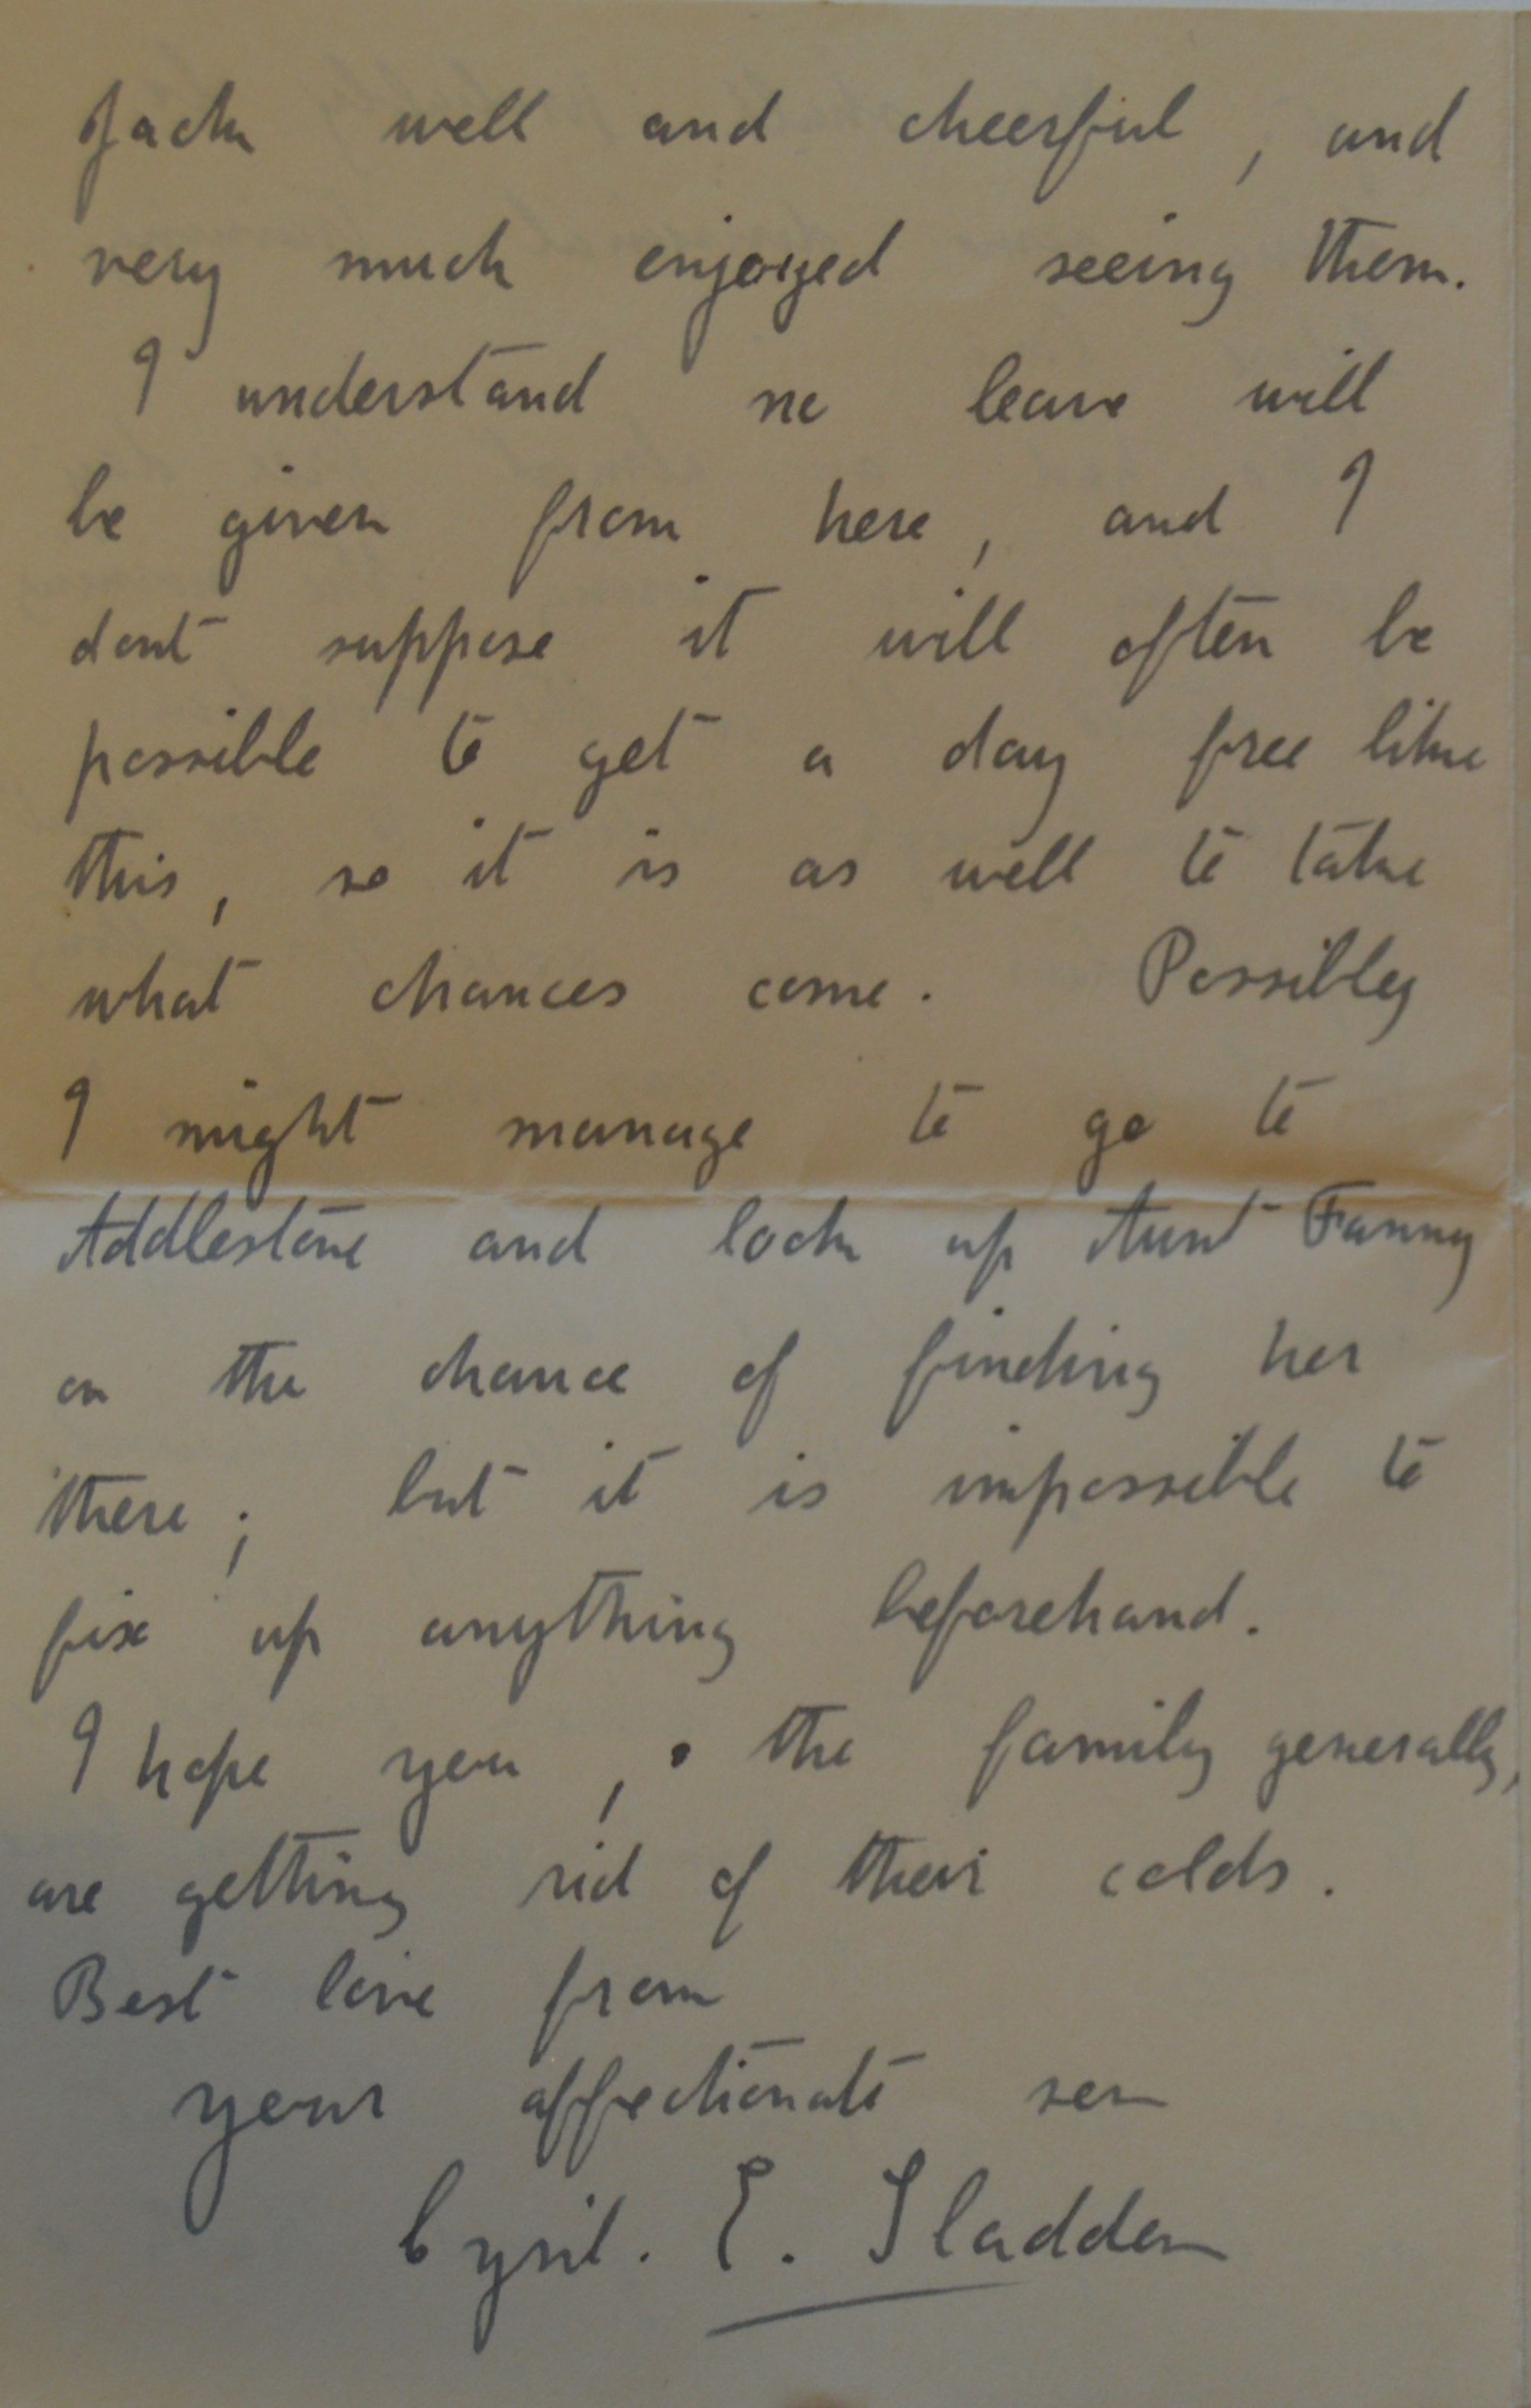 Jack well and cheerful, and
very much enjoyed seeing them.
I understand no leave will
be given from here, and I
dont suppose it will often be
possible to get a day free like
this, so it is as well to take
what chances come. Possibly
I might manage to go to
Addlestone and look up Aunt Fanny
on the chance of finding her
there; but it is impossible to
fix up anything beforehand.
I hope you, & the family generally,
are getting rid of their colds.
Best love from
your affectionate son
Cyril. E. Sladden